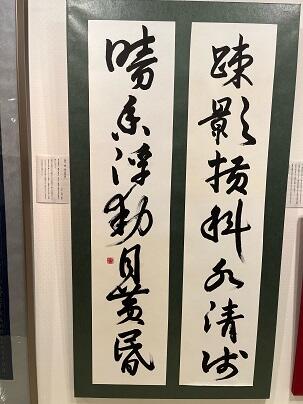 踈影横斜水清浅
暗香浮動月黄昏